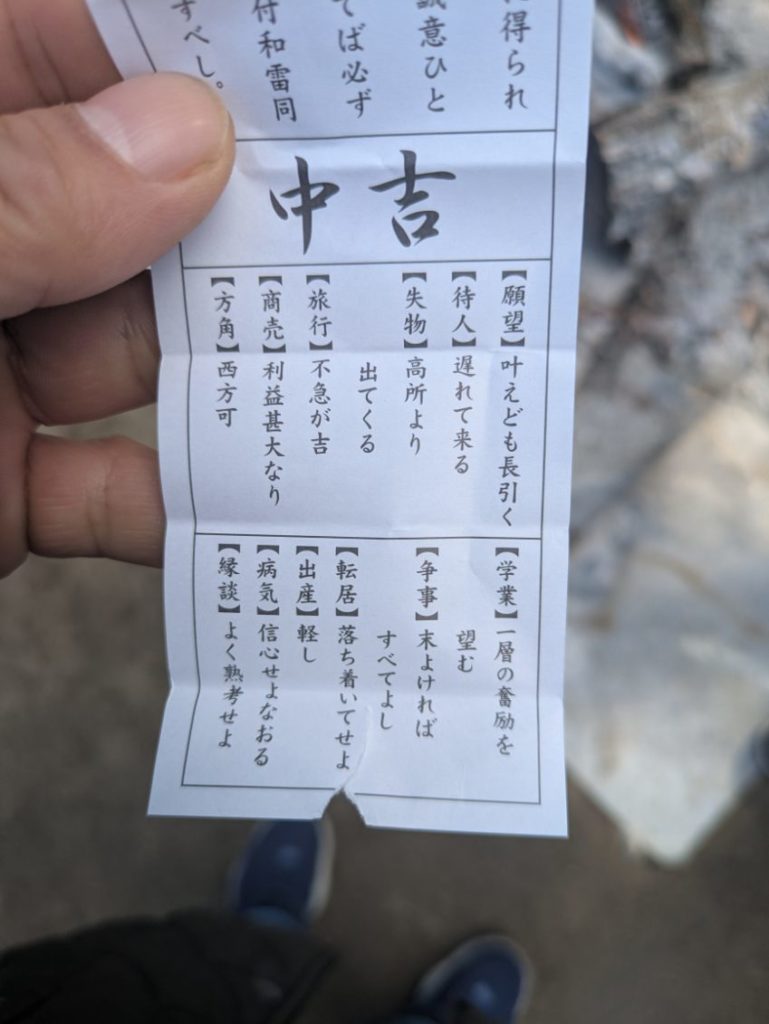 に得られ
誠意ひと
てば必ず
付和雷同
すべし。
中吉
【願望】叶えども長引く
【待人】遅れて来る
【失物】高所より
出てくる
【旅行】不急が吉
【商売】利益甚大なり
【方角】西方可
【学業】一層の奮励を
望む
【争事】末よければ
すべてよし
【転居】落ち着いてせよ
【出産】軽し
【病気】信心せよなおる
【縁談】よく熟考せよ